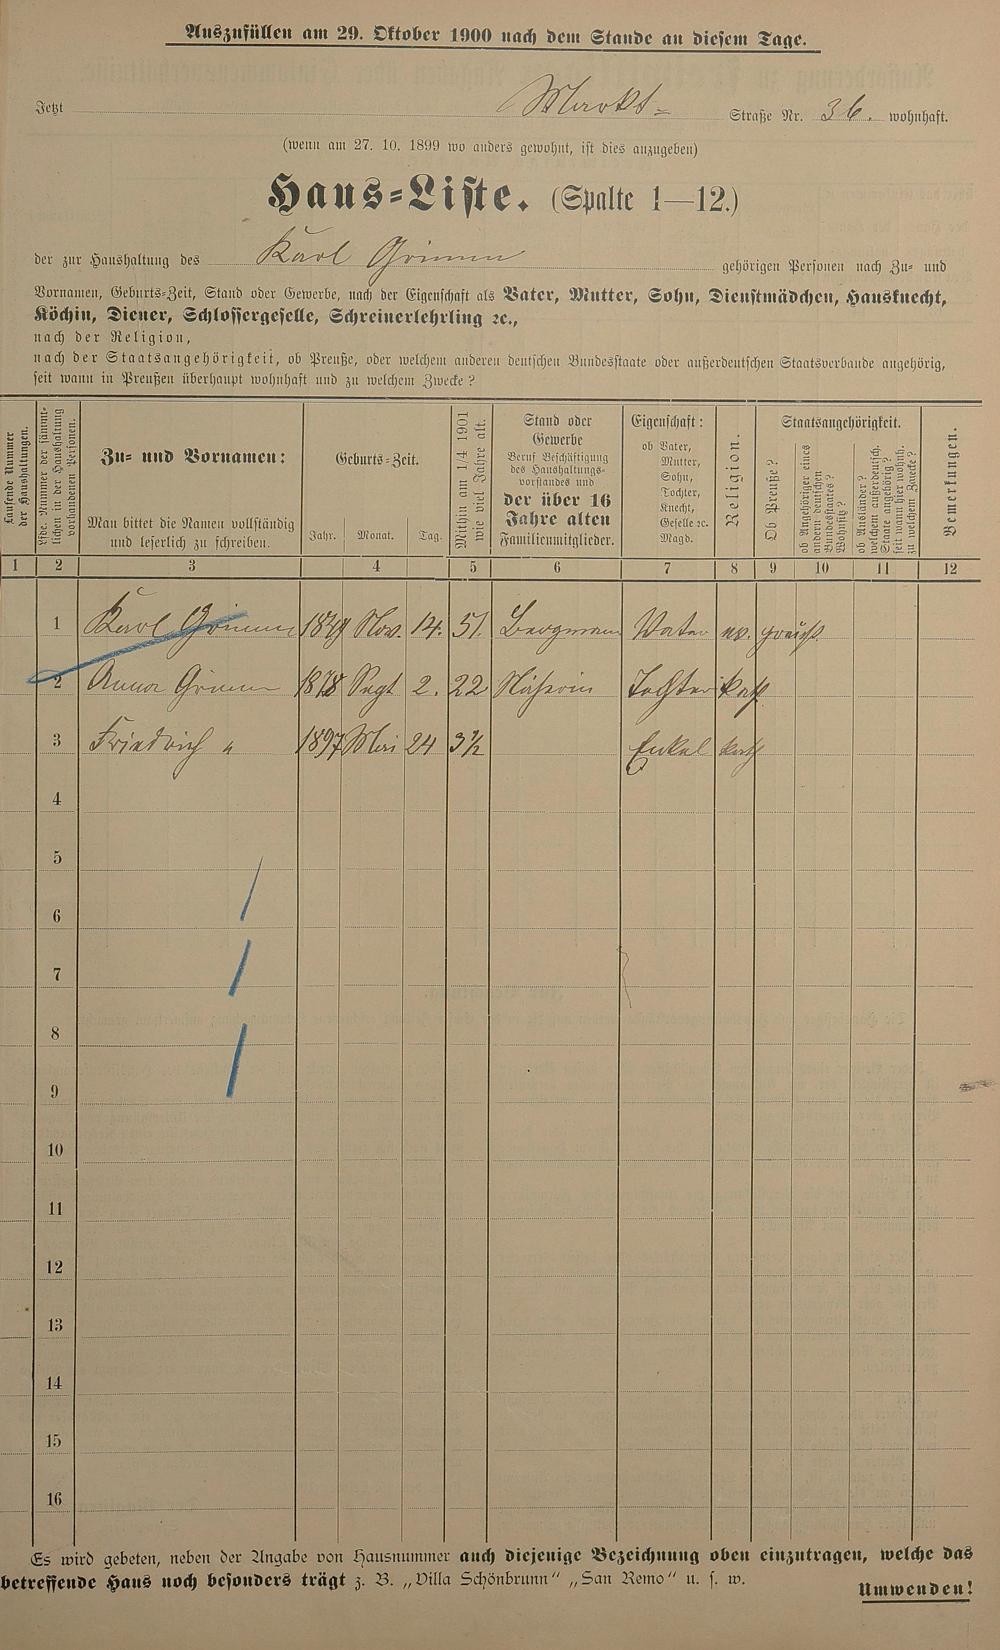 Auszufüllen am 29. Oktober 1900 nach dem Stande an diesem Tage.
Jetzt Markt= Straße Nr. 36. wohnhaft.
(wenn am 27. 10. 1899 wo anders gewohnt, ist dies anzugeben)
Haus=Liste. (Spalte 1—12.)
der zur Haushaltung des Karl Grimm gehörigen Personen nach Zu= und
Vornamen, Geburts=Zeit, Stand oder Gewerbe, nach der Eigenschaft als Vater, Mutter, Sohn, Dienstmädchen, Hausknecht,
Köchin, Diener, Schlossergeselle, Schreinerlehrling ꝛc.,
nach der Religion,
nach der Staatsangehörigkeit, ob Preuße, oder welchem anderen deutschen Bundesstaate oder außerdeutschen Staatsverbande angehörig,
seit wann in Preußen überhaupt wohnhaft und zu welchem Zwecke?
Laufende Nummer
der Haushaltungen.
Lfde. Nummer der sämmt=
lichen in der Haushaltung
vorhandenen Personen.
Zu= und Vornamen:
Man bittet die Namen vollständig
und leserlich zu schreiben.
Geburts=Zeit.
Jahr. Monat. Tag.
Mithin am 1/4 1901
wie viel Jahre alt.
Stand oder
Gewerbe
Beruf Beschäftigung
des Haushaltungs=
vorstandes und
der über 16
Jahre alten
Familienmitglieder.
Eigenschaft:
ob Vater,
Mutter,
Sohn,
Tochter,
Knecht,
Geselle ꝛc.
Magd.
Religion.
Staatsangehörigkeit.
Ob Preuße?
ob Angehöriger eines
andern deutschen
Bundesstaates?
Wohnsitz?
ob Ausländer?
welchem außerdeutsch.
Staate angehörig?
seit wann hier wohnh.
zu welchem Zwecke?
Bemerkungen.
1 2 3 4 5 6 7 8 9 10 11 12
1 Karl Grimm 1849 Nov. 14. 51. Bergmann Vater ev. preuß.
2 Anna Grimm 1878 Sept 2. 22 Näherin Tochter kath
3 Friedrich " 1897 Mai 24 3½ Enkel kath
4
5
6
7
8
9
10
11
12
13
14
15
16
Es wird gebeten, neben der Angabe von Hausnummer auch diejenige Bezeichnung oben einzutragen, welche das
betreffende Haus noch besonders trägt z. B. „Villa Schönbrunn“ „San Remo“ u. s. w.
Umwenden!